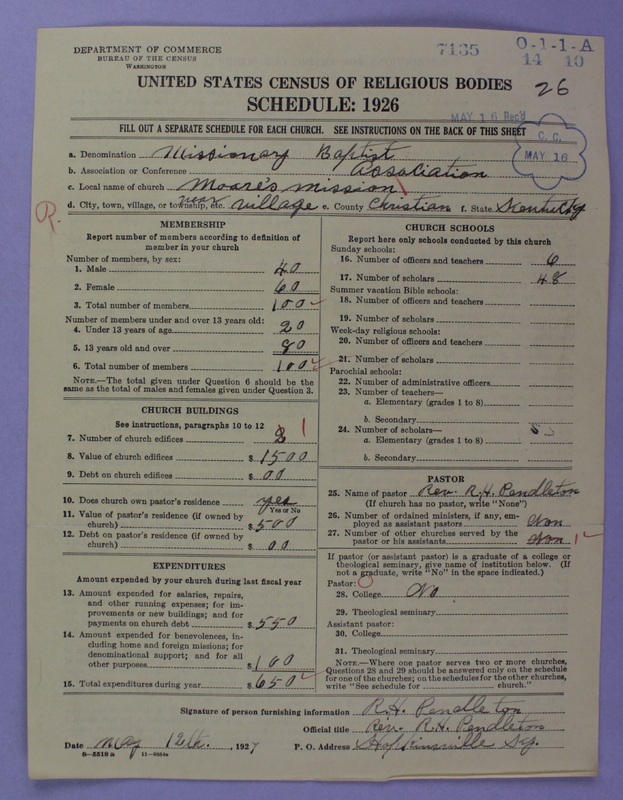 DEPARTMENT OF COMMERCE
BUREAU OF THE CENSUS
WASHINGTON
7135
O-1-1-A
14 10
26
UNITED STATES CENSUS OF RELIGIOUS BODIES
SCHEDULE: 1926
MAY 16 Rec'd
C. C.
MAY 16
FILL OUT A SEPARATE SCHEDULE FOR EACH CHURCH. SEE INSTRUCTIONS ON THE BACK OF THIS SHEET
a. Denomination Missionary Baptist
b. Association or Conference Association
c. Local name of church Moare's mission
d. City, town, village, or township, etc. near village e. County Christian f. State Kentucky
R.
MEMBERSHIP
Report number of members according to definition of
member in your church
Number of members, by sex:
1. Male 40
2. Female 60
3. Total number of members 100
Number of members under and over 13 years old:
4. Under 13 years of age 20
5. 13 years old and over 80
6. Total number of members 100
NOTE.—The total given under Question 6 should be the
same as the total of males and females given under Question 3.
CHURCH BUILDINGS
See instructions, paragraphs 10 to 12
7. Number of church edifices 2 1
8. Value of church edifices $ 1500
9. Debt on church edifices $ 00
10. Does church own pastor's residence yes
Yes or No
11. Value of pastor's residence (if owned by
church) $ 500
12. Debt on pastor's residence (if owned by
church) $ 00
EXPENDITURES
Amount expended by your church during last fiscal year
13. Amount expended for salaries, repairs,
and other running expenses; for im-
provements or new buildings; and for
payments on church debt $ 550
14. Amount expended for benevolences, in-
cluding home and foreign missions; for
denominational support; and for all
other purposes $ 100
15. Total expenditures during year $ 650
CHURCH SCHOOLS
Report here only schools conducted by this church
Sunday schools:
16. Number of officers and teachers 6
17. Number of scholars 48
Summer vacation Bible schools:
18. Number of officers and teachers
19. Number of scholars
Week-day religious schools:
20. Number of officers and teachers
21. Number of scholars
Parochial schools:
22. Number of administrative officers
23. Number of teachers—
a. Elementary (grades 1 to 8)
b. Secondary
24. Number of scholars—
a. Elementary (grades 1 to 8)
b. Secondary
PASTOR
25. Name of pastor Rev. R.H. Pendleton
(If church has no pastor, write "None")
26. Number of ordained ministers, if any, em-
ployed as assistant pastors Non
27. Number of other churches served by the
pastor or his assistants Non 1
If pastor (or assistant pastor) is a graduate of a college or
theological seminary, give name of institution below. (If
not a graduate, write "No" in the space indicated.)
Pastor: O
28. College No
29. Theological seminary
Assistant pastor:
30. College
31. Theological seminary
NOTE.—Where one pastor serves two or more churches,
Questions 28 and 29 should be answered only on the schedule
for one of the churches; on the schedules for the other churches,
write "See schedule for church."
Signature of person furnishing information R.H. Pendleton
Official title Rev. R.H. Pendleton
Date May 12th. , 1927 P. O. Address Hopkinsville Ky.
8—5518 a